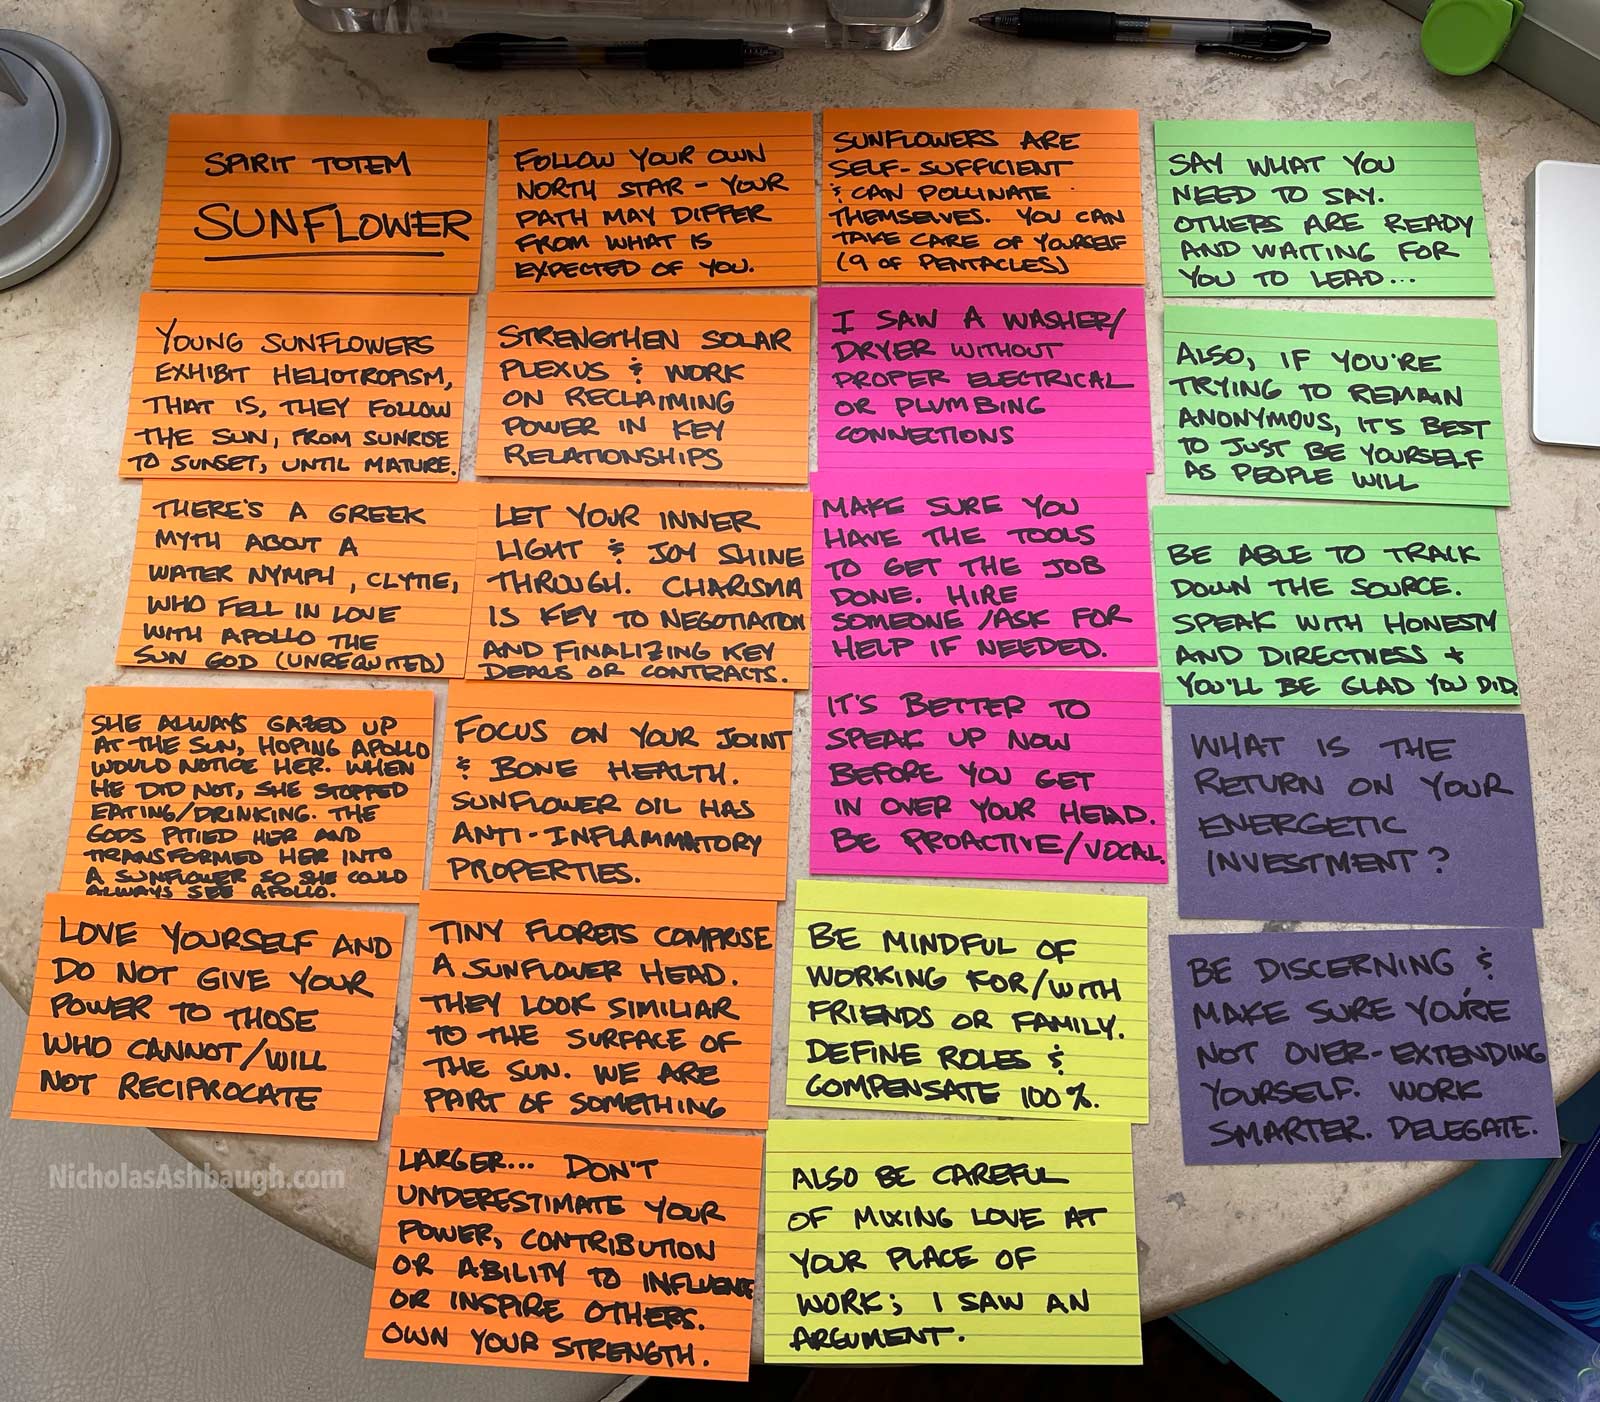 SPIRIT TOTEM
SUNFLOWER
YOUNG SUNFLOWERS
EXHIBIT HELIOTROPISM,
THAT IS, THEY FOLLOW
THE SUN, FROM SUNRISE
TO SUNSET, UNTIL MATURE.
THERE'S A GREEK
MYTH ABOUT A
WATER NYMPH, CLYTIE,
WHO FELL IN LOVE
WITH APOLLO THE
SUN GOD (UNREQUITED)
SHE ALWAYS GAZED UP
AT THE SUN, HOPING APOLLO
WOULD NOTICE HER. WHEN
HE DID NOT, SHE STOPPED
EATING/DRINKING. THE
GODS PITIED HER AND
TRANSFORMED HER INTO
A SUNFLOWER SO SHE COULD
ALWAYS SEE APOLLO.
LOVE YOURSELF AND
DO NOT GIVE YOUR
POWER TO THOSE
WHO CANNOT/WILL
NOT RECIPROCATE
FOLLOW YOUR OWN
NORTH STAR - YOUR
PATH MAY DIFFER
FROM WHAT IS
EXPECTED OF YOU.
STRENGTHEN SOLAR
PLEXUS & WORK
ON RECLAIMING
POWER IN KEY
RELATIONSHIPS
LET YOUR INNER
LIGHT & JOY SHINE
THROUGH. CHARISMA
IS KEY TO NEGOTIATION
AND FINALIZING KEY
DEALS OR CONTRACTS.
FOCUS ON YOUR JOINT
& BONE HEALTH.
SUNFLOWER OIL HAS
ANTI-INFLAMMATORY
PROPERTIES.
TINY FLORETS COMPRISE
A SUNFLOWER HEAD.
THEY LOOK SIMILIAR
TO THE SURFACE OF
THE SUN. WE ARE
PART OF SOMETHING
LARGER... DON'T
UNDERESTIMATE YOUR
POWER, CONTRIBUTION
OR ABILITY TO INFLUENCE
OR INSPIRE OTHERS.
OWN YOUR STRENGTH.
SUNFLOWERS ARE
SELF-SUFFICIENT
& CAN POLLINATE
THEMSELVES. YOU CAN
TAKE CARE OF YOURSELF
(9 OF PENTACLES)
I SAW A WASHER/
DRYER WITHOUT
PROPER ELECTRICAL
OR PLUMBING
CONNECTIONS
MAKE SURE YOU
HAVE THE TOOLS
TO GET THE JOB
DONE. HIRE
SOMEONE/ASK FOR
HELP IF NEEDED.
IT'S BETTER TO
SPEAK UP NOW
BEFORE YOU GET
IN OVER YOUR HEAD.
BE PROACTIVE/VOCAL.
BE MINDFUL OF
WORKING FOR/WITH
FRIENDS OR FAMILY.
DEFINE ROLES &
COMPENSATE 100%.
ALSO BE CAREFUL
OF MIXING LOVE AT
YOUR PLACE OF
WORK; I SAW AN
ARGUMENT.
SAY WHAT YOU
NEED TO SAY.
OTHERS ARE READY
AND WAITING FOR
YOU TO LEAD...
ALSO, IF YOU'RE
TRYING TO REMAIN
ANONYMOUS, IT'S BEST
TO JUST BE YOURSELF
AS PEOPLE WILL
BE ABLE TO TRACK
DOWN THE SOURCE.
SPEAK WITH HONESTY
AND DIRECTNESS +
YOU'LL BE GLAD YOU DID.
WHAT IS THE
RETURN ON YOUR
ENERGETIC
INVESTMENT?
BE DISCERNING &
MAKE SURE YOU'RE
NOT OVER-EXTENDING
YOURSELF. WORK
SMARTER. DELEGATE.
NicholasAshbaugh.com